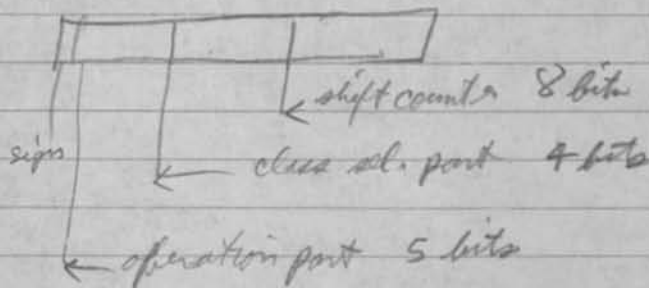 shift counter 8 bits
sign
class sel. part 4 bits
operation part 5 bits